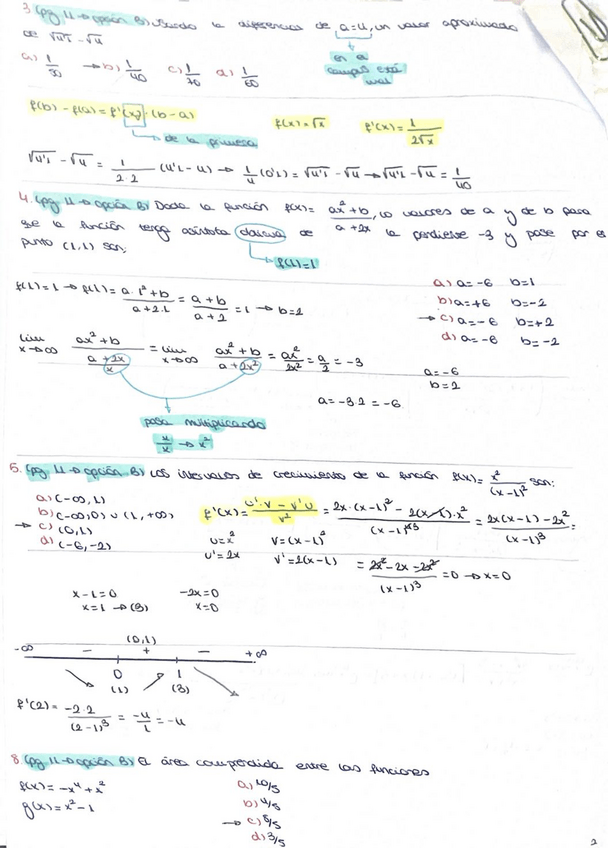 3. (pg. 11 → opción B) Usando la diferencial de a=4, un valor aproximado
de √4'1 - √4
a) 1/30 → b) 1/40 c) 1/70 d) 1/60
en el campus está mal
f(b) - f(a) = f'(x₀) · (b-a) f(x) = √x f'(x) = 1/2√x
de la primera
√4'1 - √4 = 1/2·2 (4'1 - 4) → 1/4 (0'1) = √4'1 - √4 → √4'1 - √4 = 1/40
4. (pg. 11 → opción B) Dada la función f(x) = ax²+b / a+2x, los valores de a y de b para
que la función tenga asíntota oblicua de la pendiente -3 y pase por el
punto (1,1) son:
f(1)=1
f(1)=1 → f(1) = a·1²+b / a+2·1 = a+b / a+2 = 1 → b=2
a) a=-6 b=1
b) a=+6 b=-2
→ c) a=-6 b=+2
d) a=-6 b=-2
lim x→∞ ax²+b / a+2x / x = lim x→∞ ax²+b / a+2x² = ax²/2x² = a/2 = -3
a=-6
b=2
a=-3·2 = -6
pasa multiplicando
x/x → x²
5. (pg. 11 → opción B) Los intervalos de crecimiento de la función f(x) = x²/(x-1)² son:
a) (-∞, 1)
b) (-∞, 0) ∪ (1, +∞)
→ c) (0,1)
d) (-6, -2)
f'(x) = u'·v - v'·u / v² = 2x·(x-1)² - 2(x-1)·x² / (x-1)⁴³ = 2x(x-1) - 2x² / (x-1)³ =
u=x² v=(x-1)²
u'=2x v'=2(x-1) = 2x² - 2x - 2x² / (x-1)³ = 0 → x=0
x-1=0 -2x=0
x=1 → (3) x=0
(0,1)
-∞ - + - +∞
0 1
(1) (3)
f'(2) = -2·2 / (2-1)³ = -4/1 = -4
8. (pg. 11 → opción B) El área comprendida entre las funciones
f(x) = -x⁴ + x²
g(x) = x² - 1
a) 10/5
b) 4/5
→ c) 8/5
d) 3/5
2